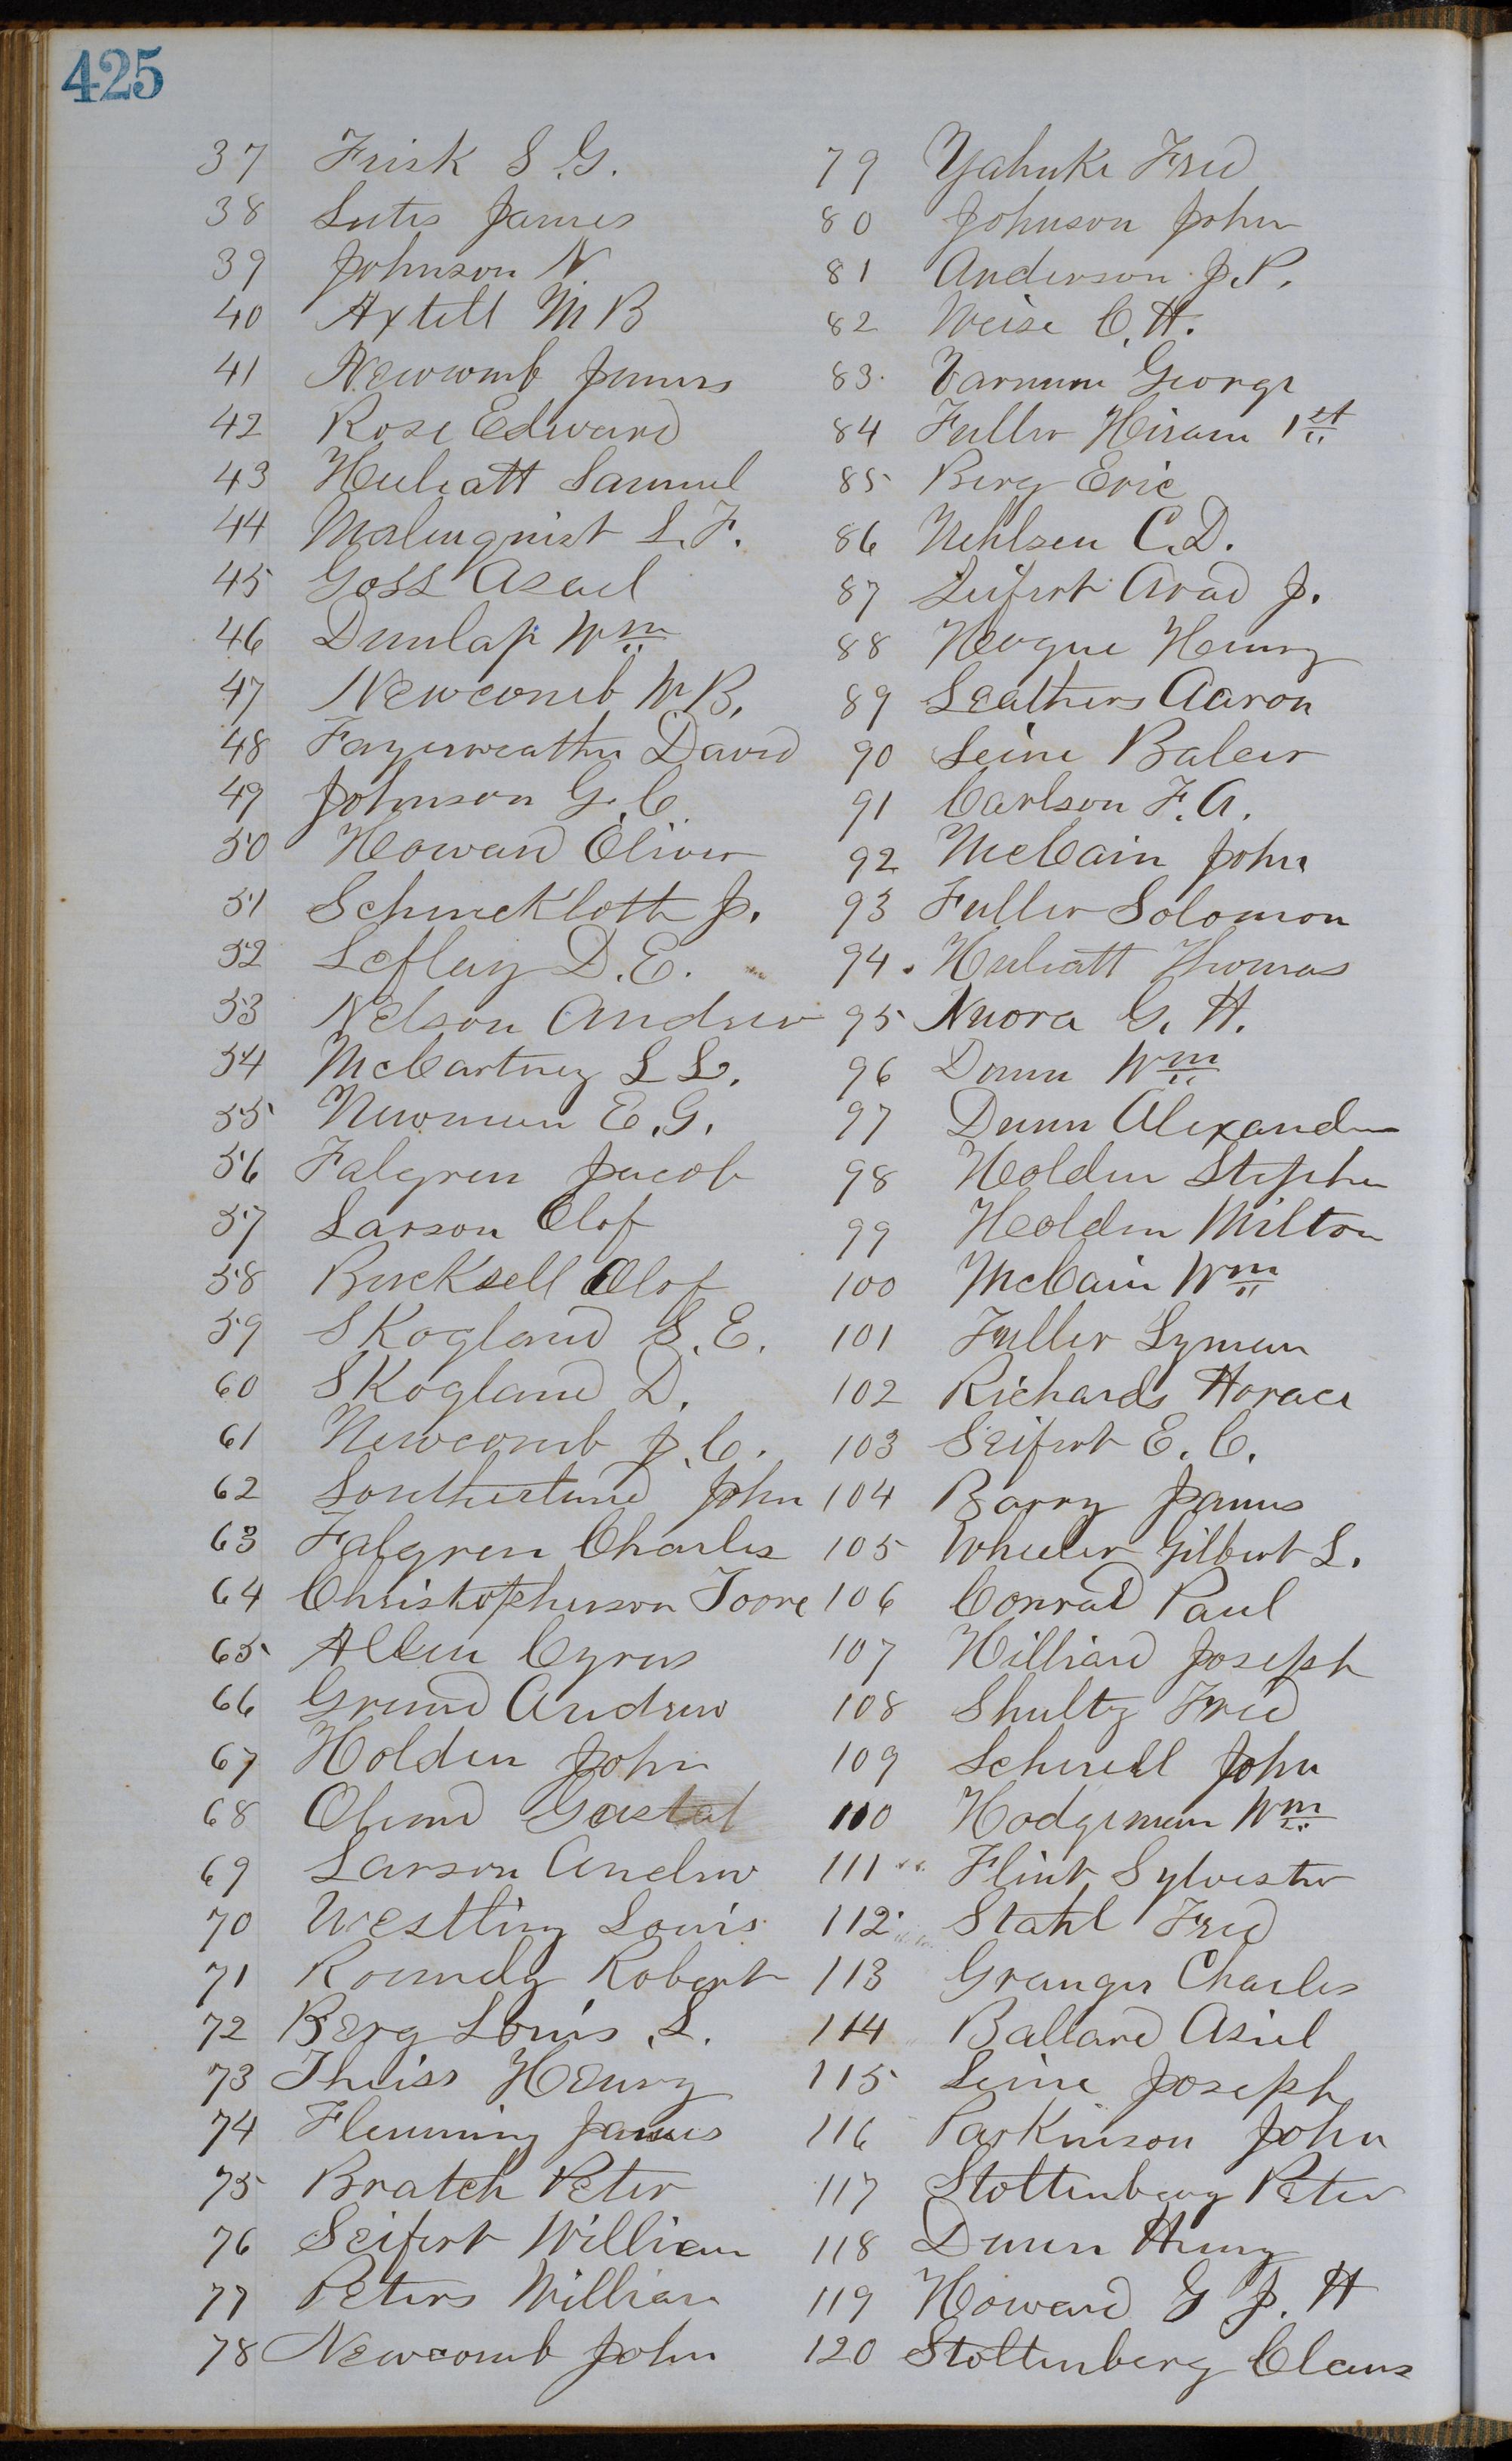 425
37 Frisk S. G.
38 Lutes James
39 Johnson N
40 Axtell M B
41 Newcomb James
42 Rose Edward
43 Huliatt Samuel
44 Malmquist L. F.
45 Goss Asael
46 Dunlap Wm
47 Newcomb W B.
48 Fayerweather David
49 Johnson G. C.
50 Howard Oliver
51 Schmekloth J.
52 Lefley D. E.
53 Nelson Andrew
54 McCartney L L.
55 Newman E. G.
56 Falgren Jacob
57 Larson Olof
58 Bucksell Olof
59 Skogland S. E.
60 Skogland D.
61 Newcomb J. C.
62 Southerland John
63 Falgren Charles
64 Christopherson Toore
65 Allen Cyrus
66 Grund Andrew
67 Holden John
68 Olund
69 Larson Andrew
70 Westling Louis
71 Roundy Robert
72 Berg Louis L.
73 Theiss Henry
74 Flemming James
75 Bratch Peter
76 Seifert William
77 Peters William
78 Newcomb John
79 Yahnke Fred
80 Johnson John
81 Anderson J. P.
82 Weise C. H.
83 Varnum George
84 Fuller Hiram 1st
85 Berg Eric
86 Nehlsen C. D.
87 Seifert Arad J.
88 Hogue Henry
89 Leathers Aaron
90 Leine Balcer
91 Carlson F. A.
92 McCain John
93 Fuller Solomon
94 Huliatt Thomas
95 Knora G. H.
96 Dunn Wm
97 Dunn Alexander
98 Holden Stephen
99 Holden Milton
100 McCain Wm
101 Fuller Lyman
102 Richards Horace
103 Seifert E. C.
104 Barry James
105 Wheeler Gilbert L.
106 Conrad Paul
107 Hilliard Joseph
108 Shultz Fred
109 Schnell John
110 Hodgeman Wm
111 Flint Sylvester
112 Stahl Fred
113 Granger Charles
114 Ballard Asiel
115 Leine Joseph
116 Parkinson John
117 Stoltenberg Peter
118 Dunn Henry
119 Howard G J. H
120 Stoltenberg Claus